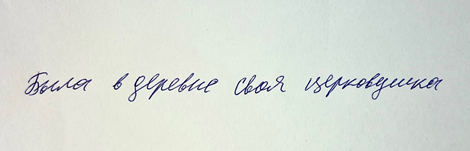 Была в деревне своя церковушка